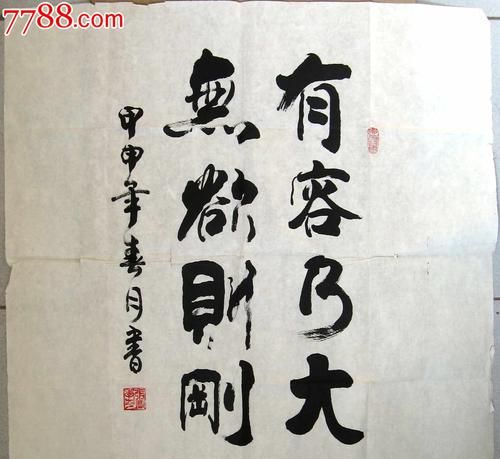 7788.com
有容乃大
無欲則剛
甲申年春月書